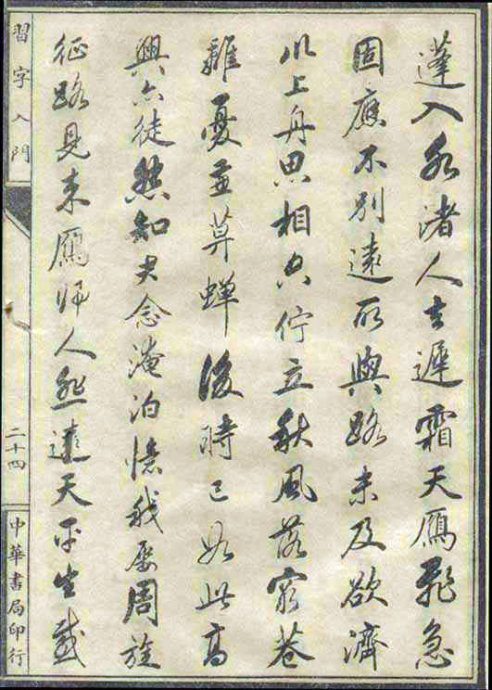 蓬入水渚人去遲霜天雁飛急
固應不別遠所與路未及欲濟
川上舟思相空佇立秋風落窮巷
離憂兼暮蟬後時已如此高
興亦徒然知君念淹泊憶我屢周旋
征路見來雁歸人悲遠天平生感
習字入門
二十四
中華書局印行